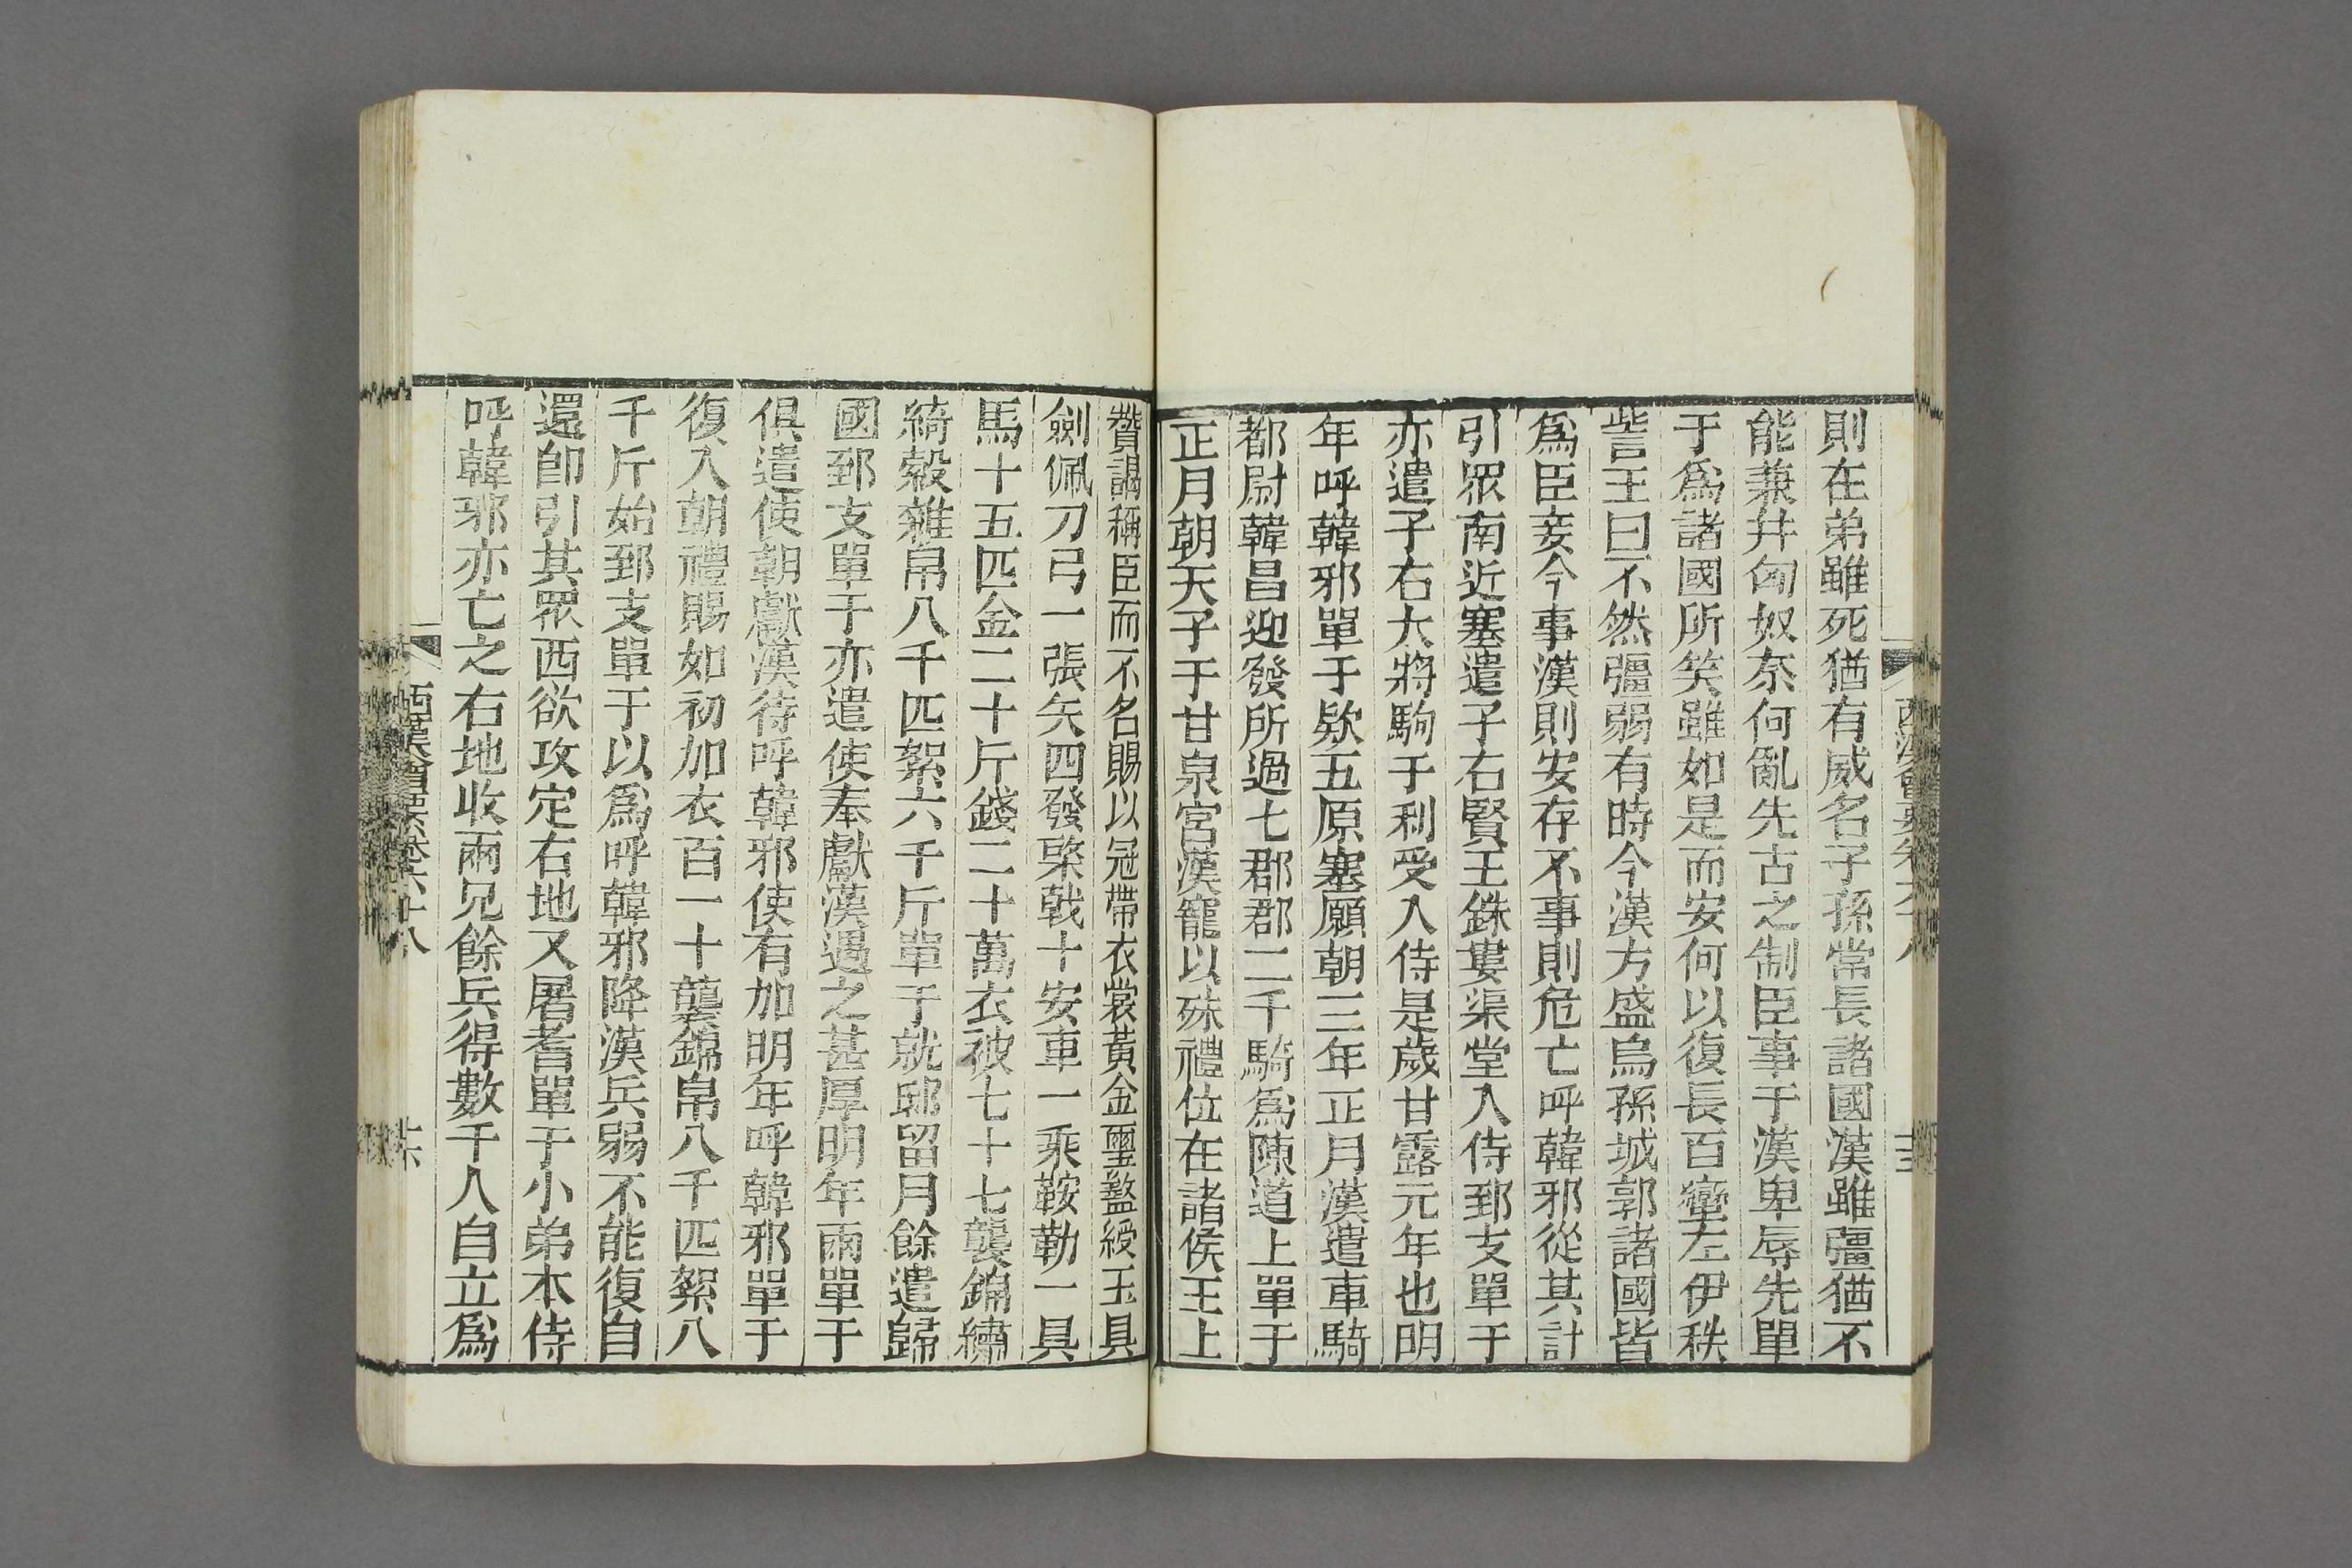 則在弟雖死猶有威名子孫常長諸國漢雖彊猶不
能兼幷匈奴奈何亂先古之制臣事于漢卑辱先單
于爲諸國所笑雖如是而安何以復長百蠻左伊秩
訾王曰不然彊弱有時今漢方盛烏孫城郭諸國皆
爲臣妾今事漢則安存不事則危亡呼韓邪從其計
引眾南近塞遣子右賢王銖婁渠堂入侍郅支單于
亦遣子右大將駒于利受入侍是歲甘露元年也明
年呼韓邪單于欵五原塞願朝三年正月漢遣車騎
都尉韓昌迎發所過七郡郡二千騎爲陳道上單于
正月朝天子于甘泉宮漢寵以殊禮位在諸侯王上
贊謁稱臣而不名賜以冠帶衣裳黃金璽盭綬玉具
劍佩刀弓一張矢四發棨戟十安車一乘鞍勒一具
馬十五匹金二十斤錢二十萬衣被七十七襲錦繡
綺縠雜帛八千匹絮六千斤單于就邸留月餘遣歸
國郅支單于亦遣使奉獻漢遇之甚厚明年兩單于
俱遣使朝獻漢待呼韓邪使有加明年呼韓邪單于
復入朝禮賜如初加衣百一十襲錦帛八千匹絮八
千斤始郅支單于以爲呼韓邪降漢兵弱不能復自
還卽引其眾西欲攻定右地又屠耆單于小弟本侍
呼韓邪亦亡之右地收兩兄餘兵得數千人自立爲
西漢會要卷六十八